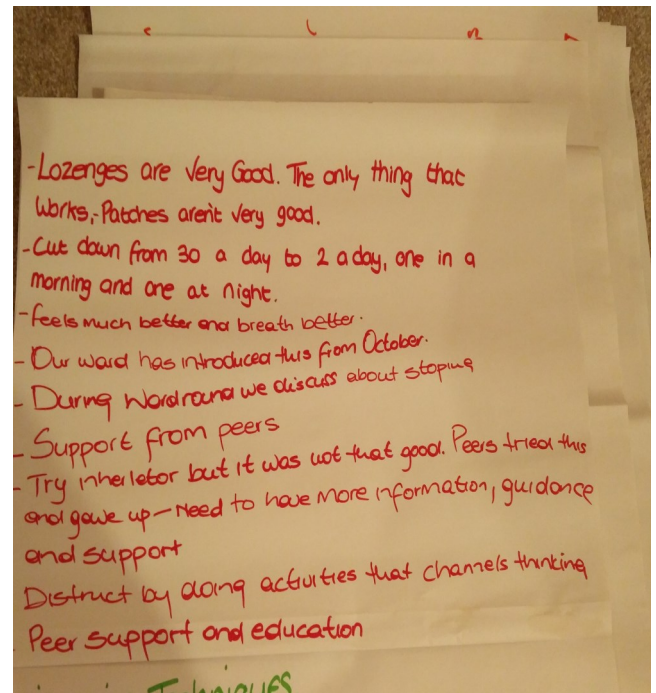 -Lozenges are Very Good. The only thing that
Works,-Patches aren't very good.
-Cut down from 30 a day to 2 a day, one in a
morning and one at night.
-feels much better and breath better.
- Our ward has introduced this from October.
- During Wardround we discuss about stoping
- Support from peers
- Try inherletor but it was not that good. Peers tried this
and gave up - need to have more information, guidance
and support
Distruct by doing activities that channels thinking
Peer support and education
Techniques